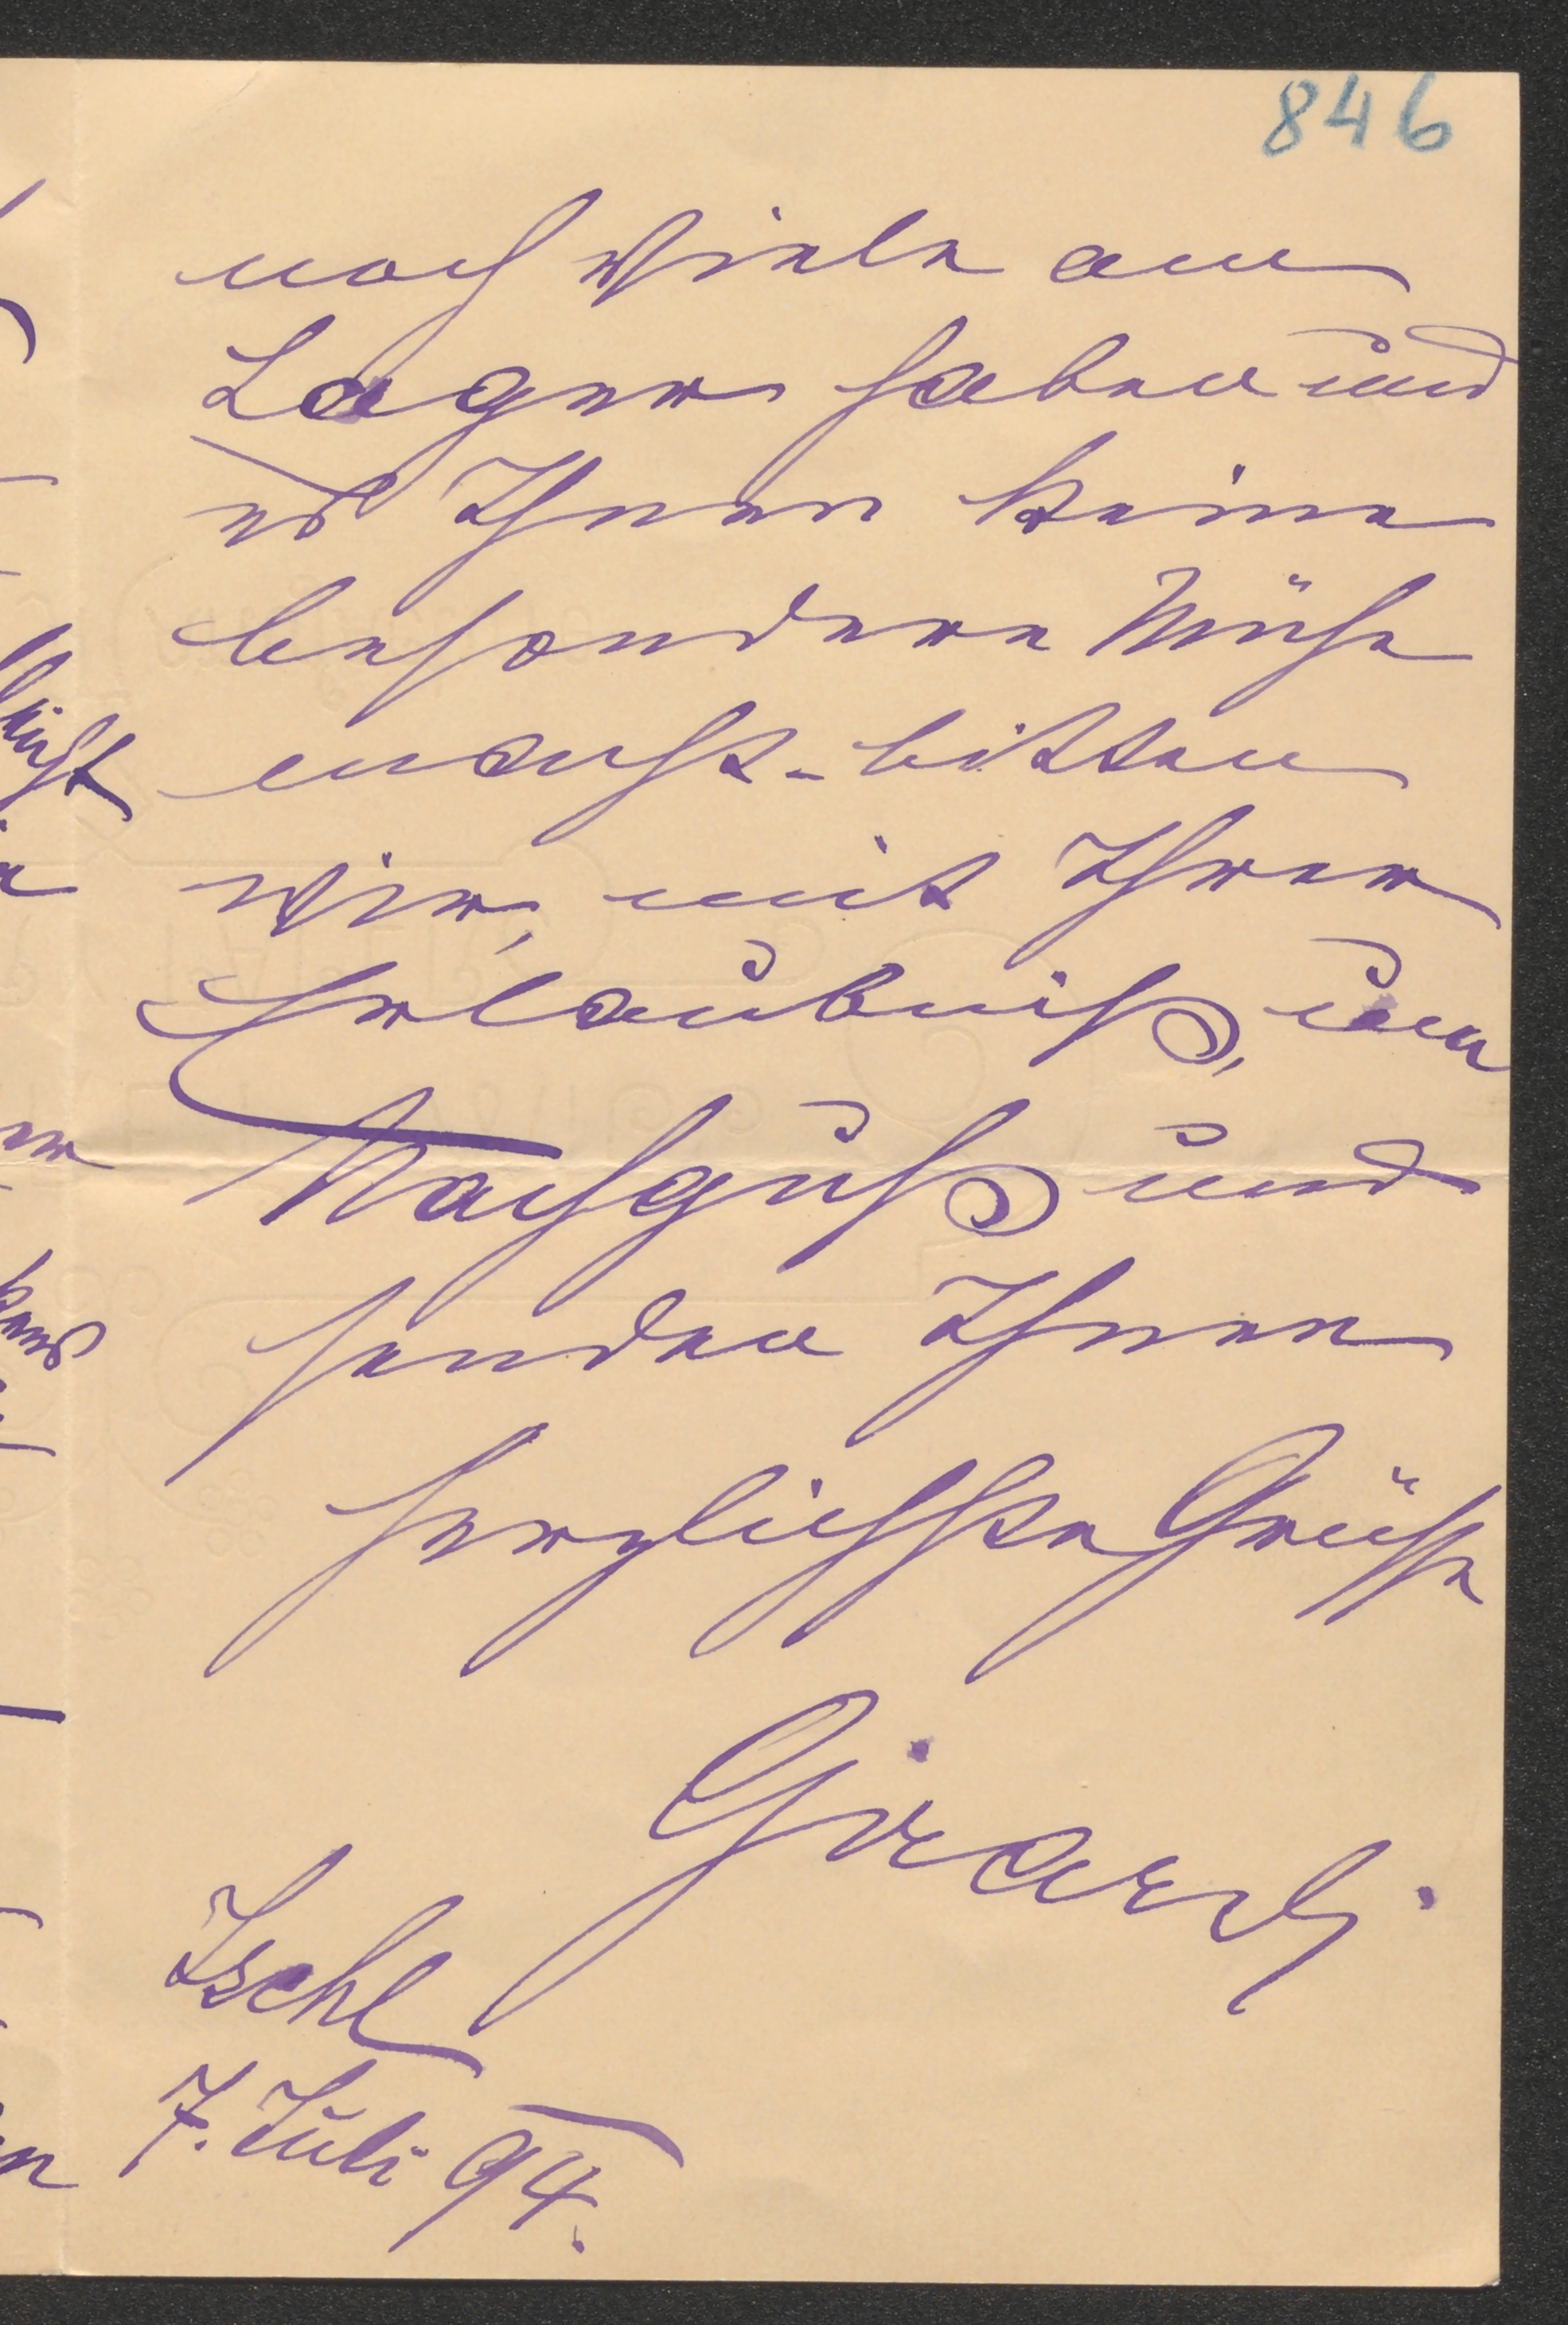 846
noch viele am
Lager haben und
es Ihnen keine
besondere Mühe
macht - bitten
wir, mit Ihrer
Erlaubniß, um
Nachguß und
senden Ihnen
herzlichste Grüsse
Girardi
Ischl
7. Juli 94.